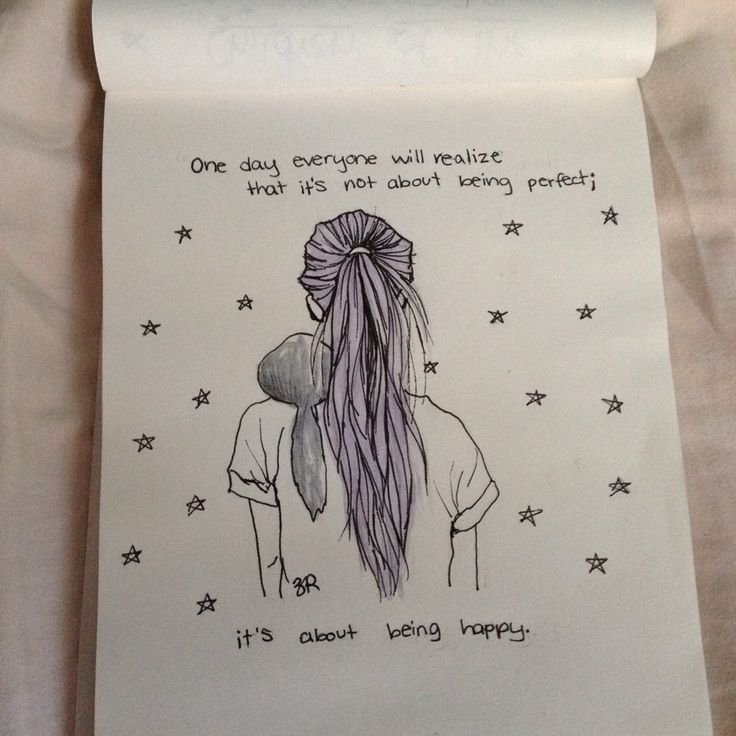 One day everyone will realize
that it's not about being perfect;
ZR
it's about being happy.